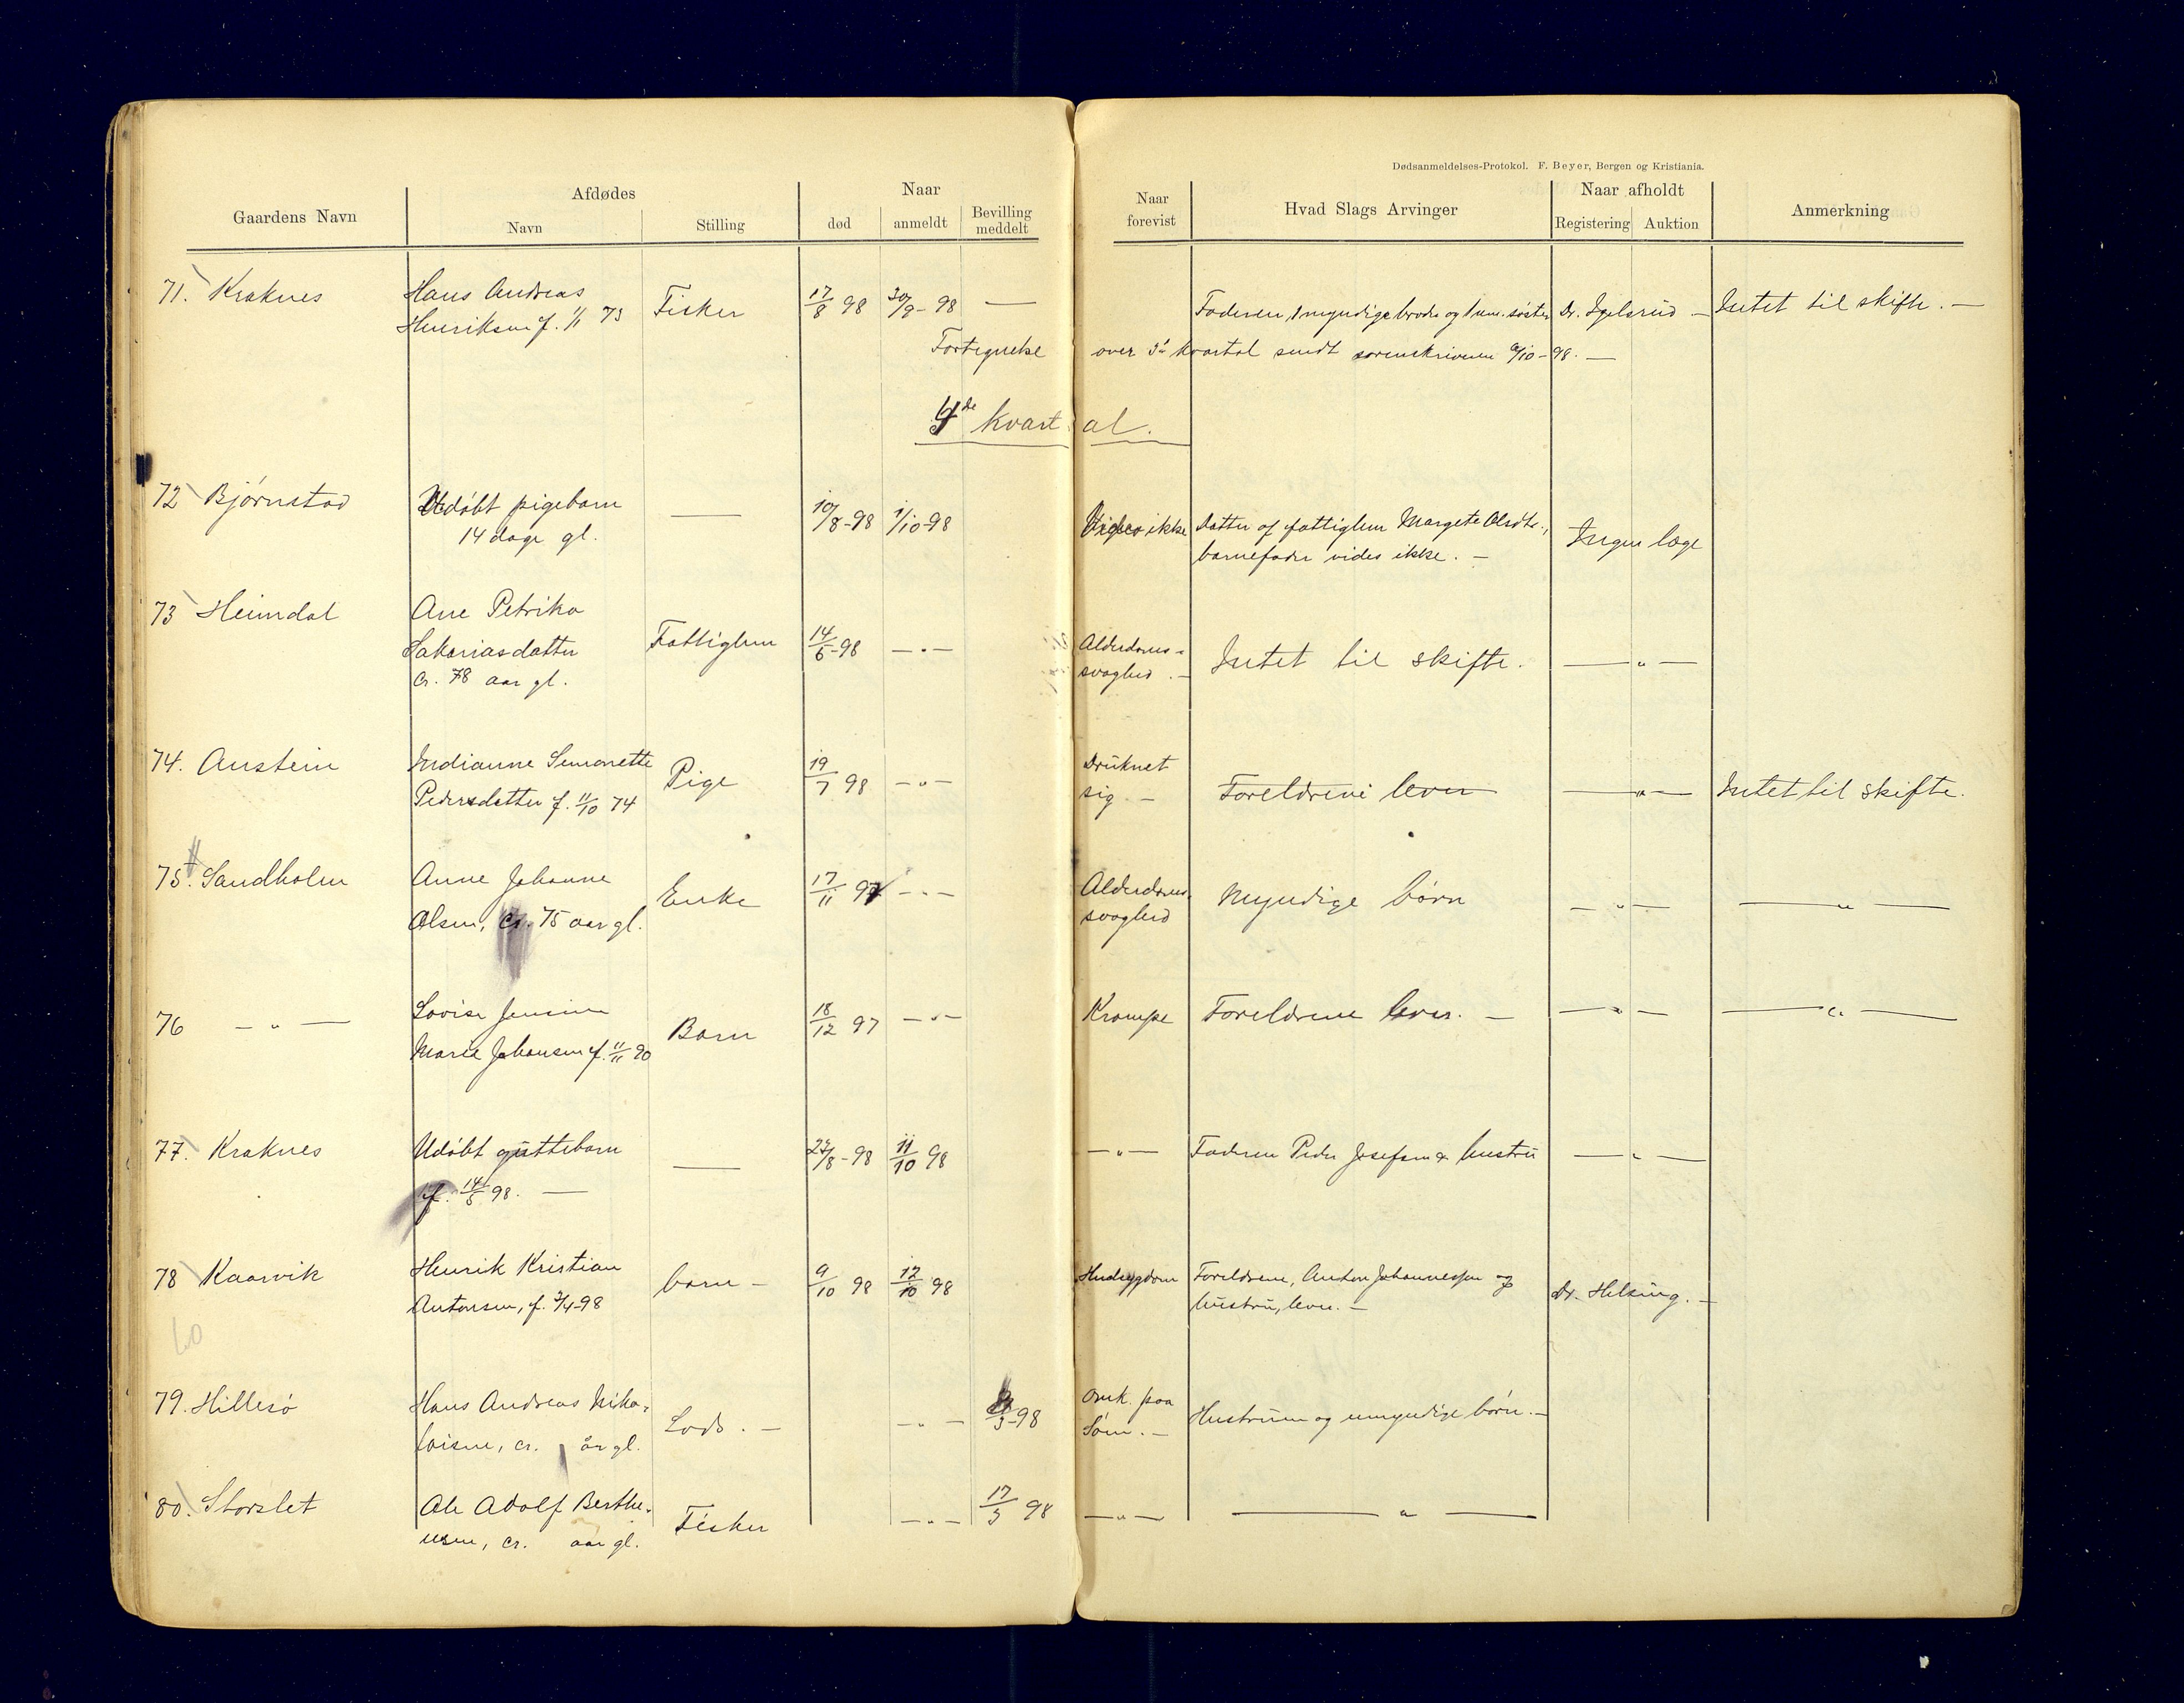 Dødsanmeldelses-Protokol. F. Beyer, Bergen og Kristiania.
Gaardens Navn
Afdødes
Navn
Stilling
Naar
død
anmeldt
Bevilling meddelt
Naar forevist
Hvad Slags Arvinger
Naar afholdt
Registering
Auktion
Anmerkning
71. Kraknes
Hans Andreas
Henriksen f. 1/1 73
Fisker
17/8 98
30/9-98
—
Faderen, 1 myndige broder og 1 um. søster
Dr. Igelsrud —
Intet til skifte. —
Fortegnelse over 3die kvartal sendt sorenskriveren /10-98. —
4de kvartal.
72 Bjørnstad
Udøbt pigebarn
14 dage gl.
—
10/8-98
1/10-98
Vides ikke
Datter af fattiglem Margete Olsdtr.,
barnefader vides ikke. —
Ingen læge
73 Heimdal
Ane Petrika
Sakariasdatter
cr. 78 aar gl.
Fattiglem
14/6-98
— " —
Alderdoms-
svaghed. —
Intet til skifte.
— " —
74. Austein
Indianne Simonette
Pedersdatter f. 11/10 74
Pige
19/7 98
— " —
Druknet
sig. —
Foreldrene lever
— " —
Intet til skifte.
75. Sandholm
Anne Johanne
Olsen, cr. 75 aar gl.
Enke
17/11 97
— " —
Alderdoms-
svaghed
Myndige børn
— " —
— " —
76 — " —
Lovise Jensine
Marie Johansen f. 11/11 90
Barn
18/12 97
— " —
Krampe
Foreldrene lever. —
— " —
— " —
77. Kraknes
Udøbt guttebarn
f. 14/5 98. —
—
22/8-98
11/10 98
— " —
Faderen Peder Josefsen & hustru
— " —
78 Kaarvik
Henrik Kristian
Antonsen, f. 2/4-98
barn —
9/10 98
12/10 98
Hudsygdom
Foreldrene, Anton Johannessen og
hustru, lever. —
Dr. Helsing. —
60
79. Hillesø
Hans Andreas Niko-
laisen, cr. år gl.
Lods. —
— " —
/3-98
Omk. paa
Søen. —
Hustruen og umyndige børn. —
80. Storslet
Ole Adolf Berthe-
usen, cr. aar gl.
Fisker
— " —
17/3 98
— " —
— " —